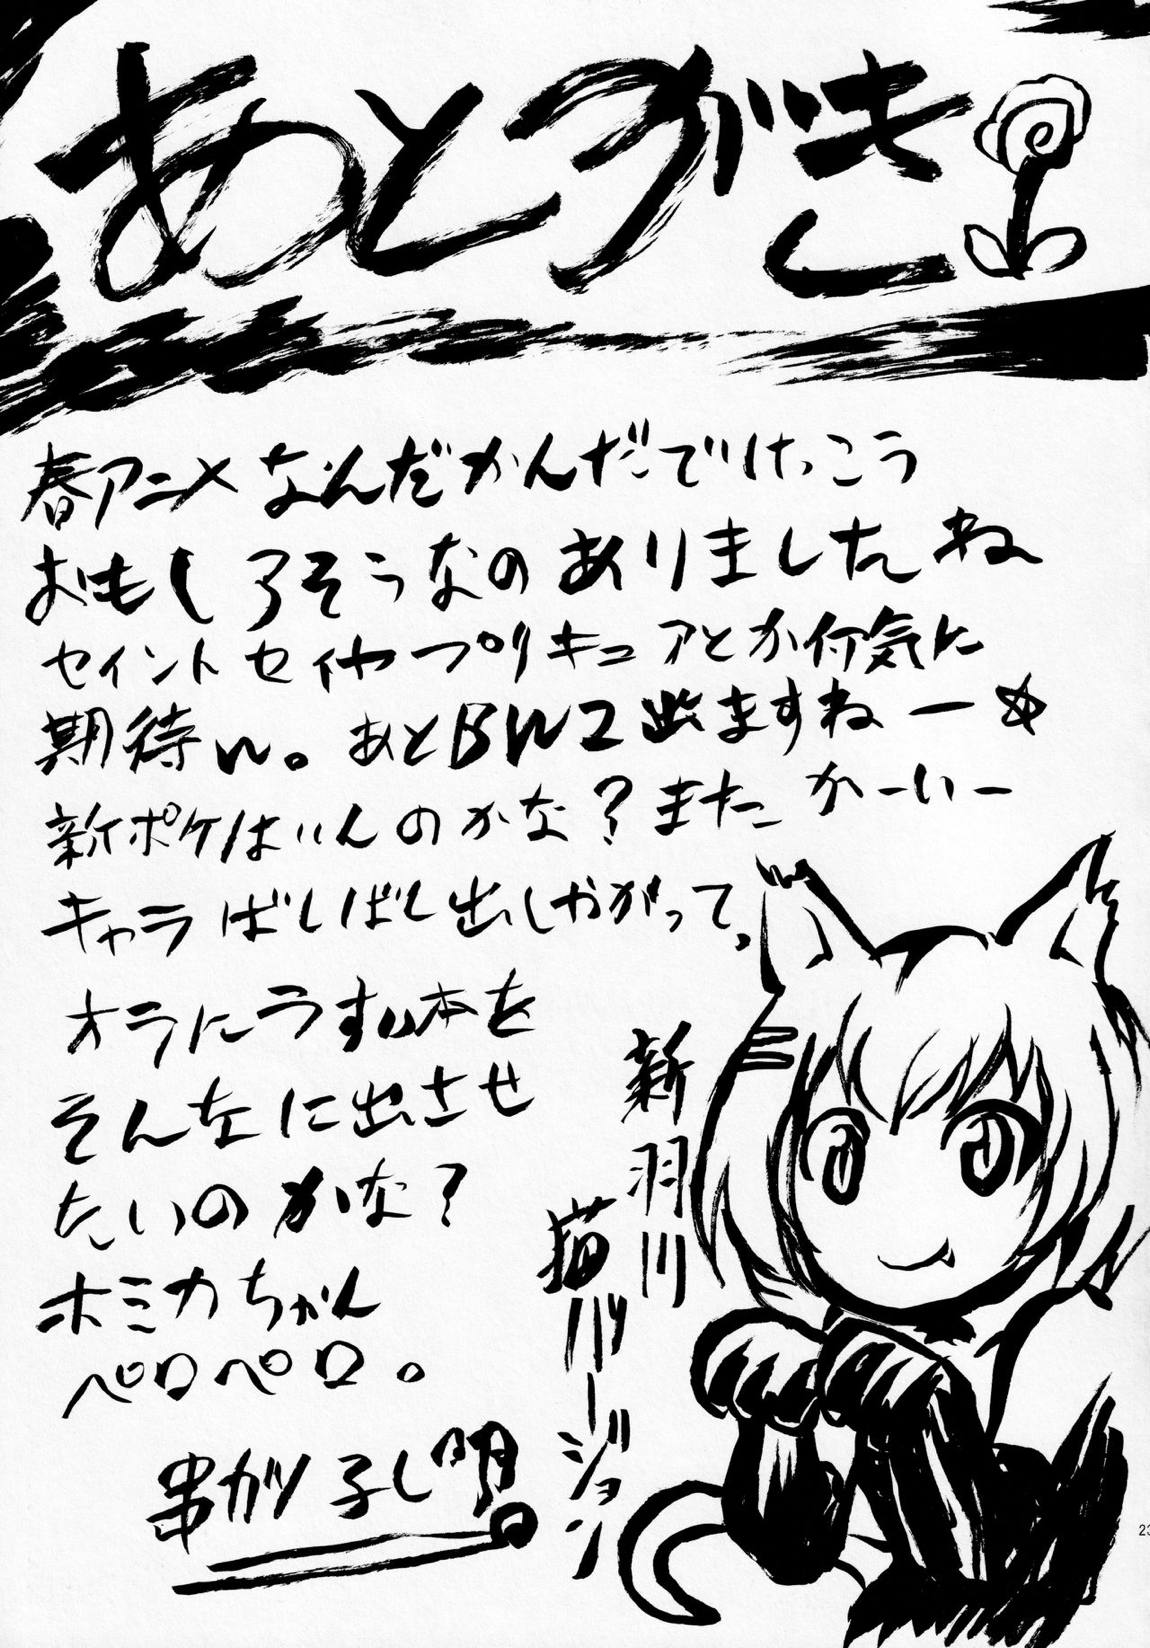 あとがき
春アニメなんだかんだでけっこう
おもしろそうなのありましたね
セイントセイヤプリキュアとか何気に
期待w。あとBW2出ますねー☆
新ポケはいんのかな?またかーいー
キャラばしばし出しやがって、
オラにうすい本を
そんなに出させ
たいのかな?
ホミカちゃん
ペロペロ。
新羽川
猫バージョン
串カツ子し明
23